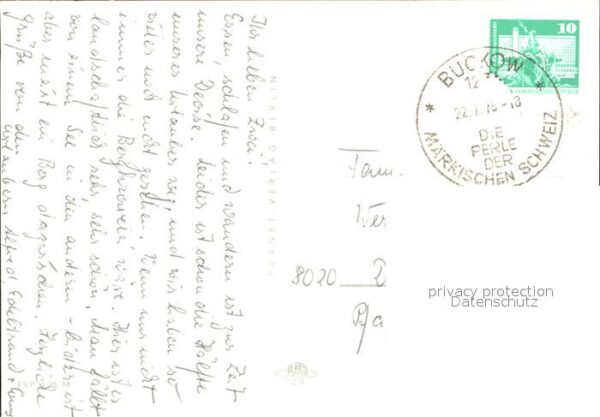 Ihr lieben Zwei!
Essen, schlafen und wandern ist zur Zeit
unsere Devise. Leider ist schon die Hälfte
unseres Urlaubes weg, und wir haben so
vieles noch nicht gesehen. Wenn nur nicht
immer die Bergkraxelei wäre. Hier ist es
landschaftlich sehr, sehr schön. Man fällt
von einem See in den anderen - leider ist
aber meist ein Berg dazwischen. Herzliche
Grüße von den
Urlaubern
PLANET-VERLAG BERLIN
10
BUCKOW
12
22.7.75-18
DIE
PERLE
DER
MÄRKISCHEN SCHWEIZ
Fam.
Wer
8020 D
privacy protection
Datenschutz